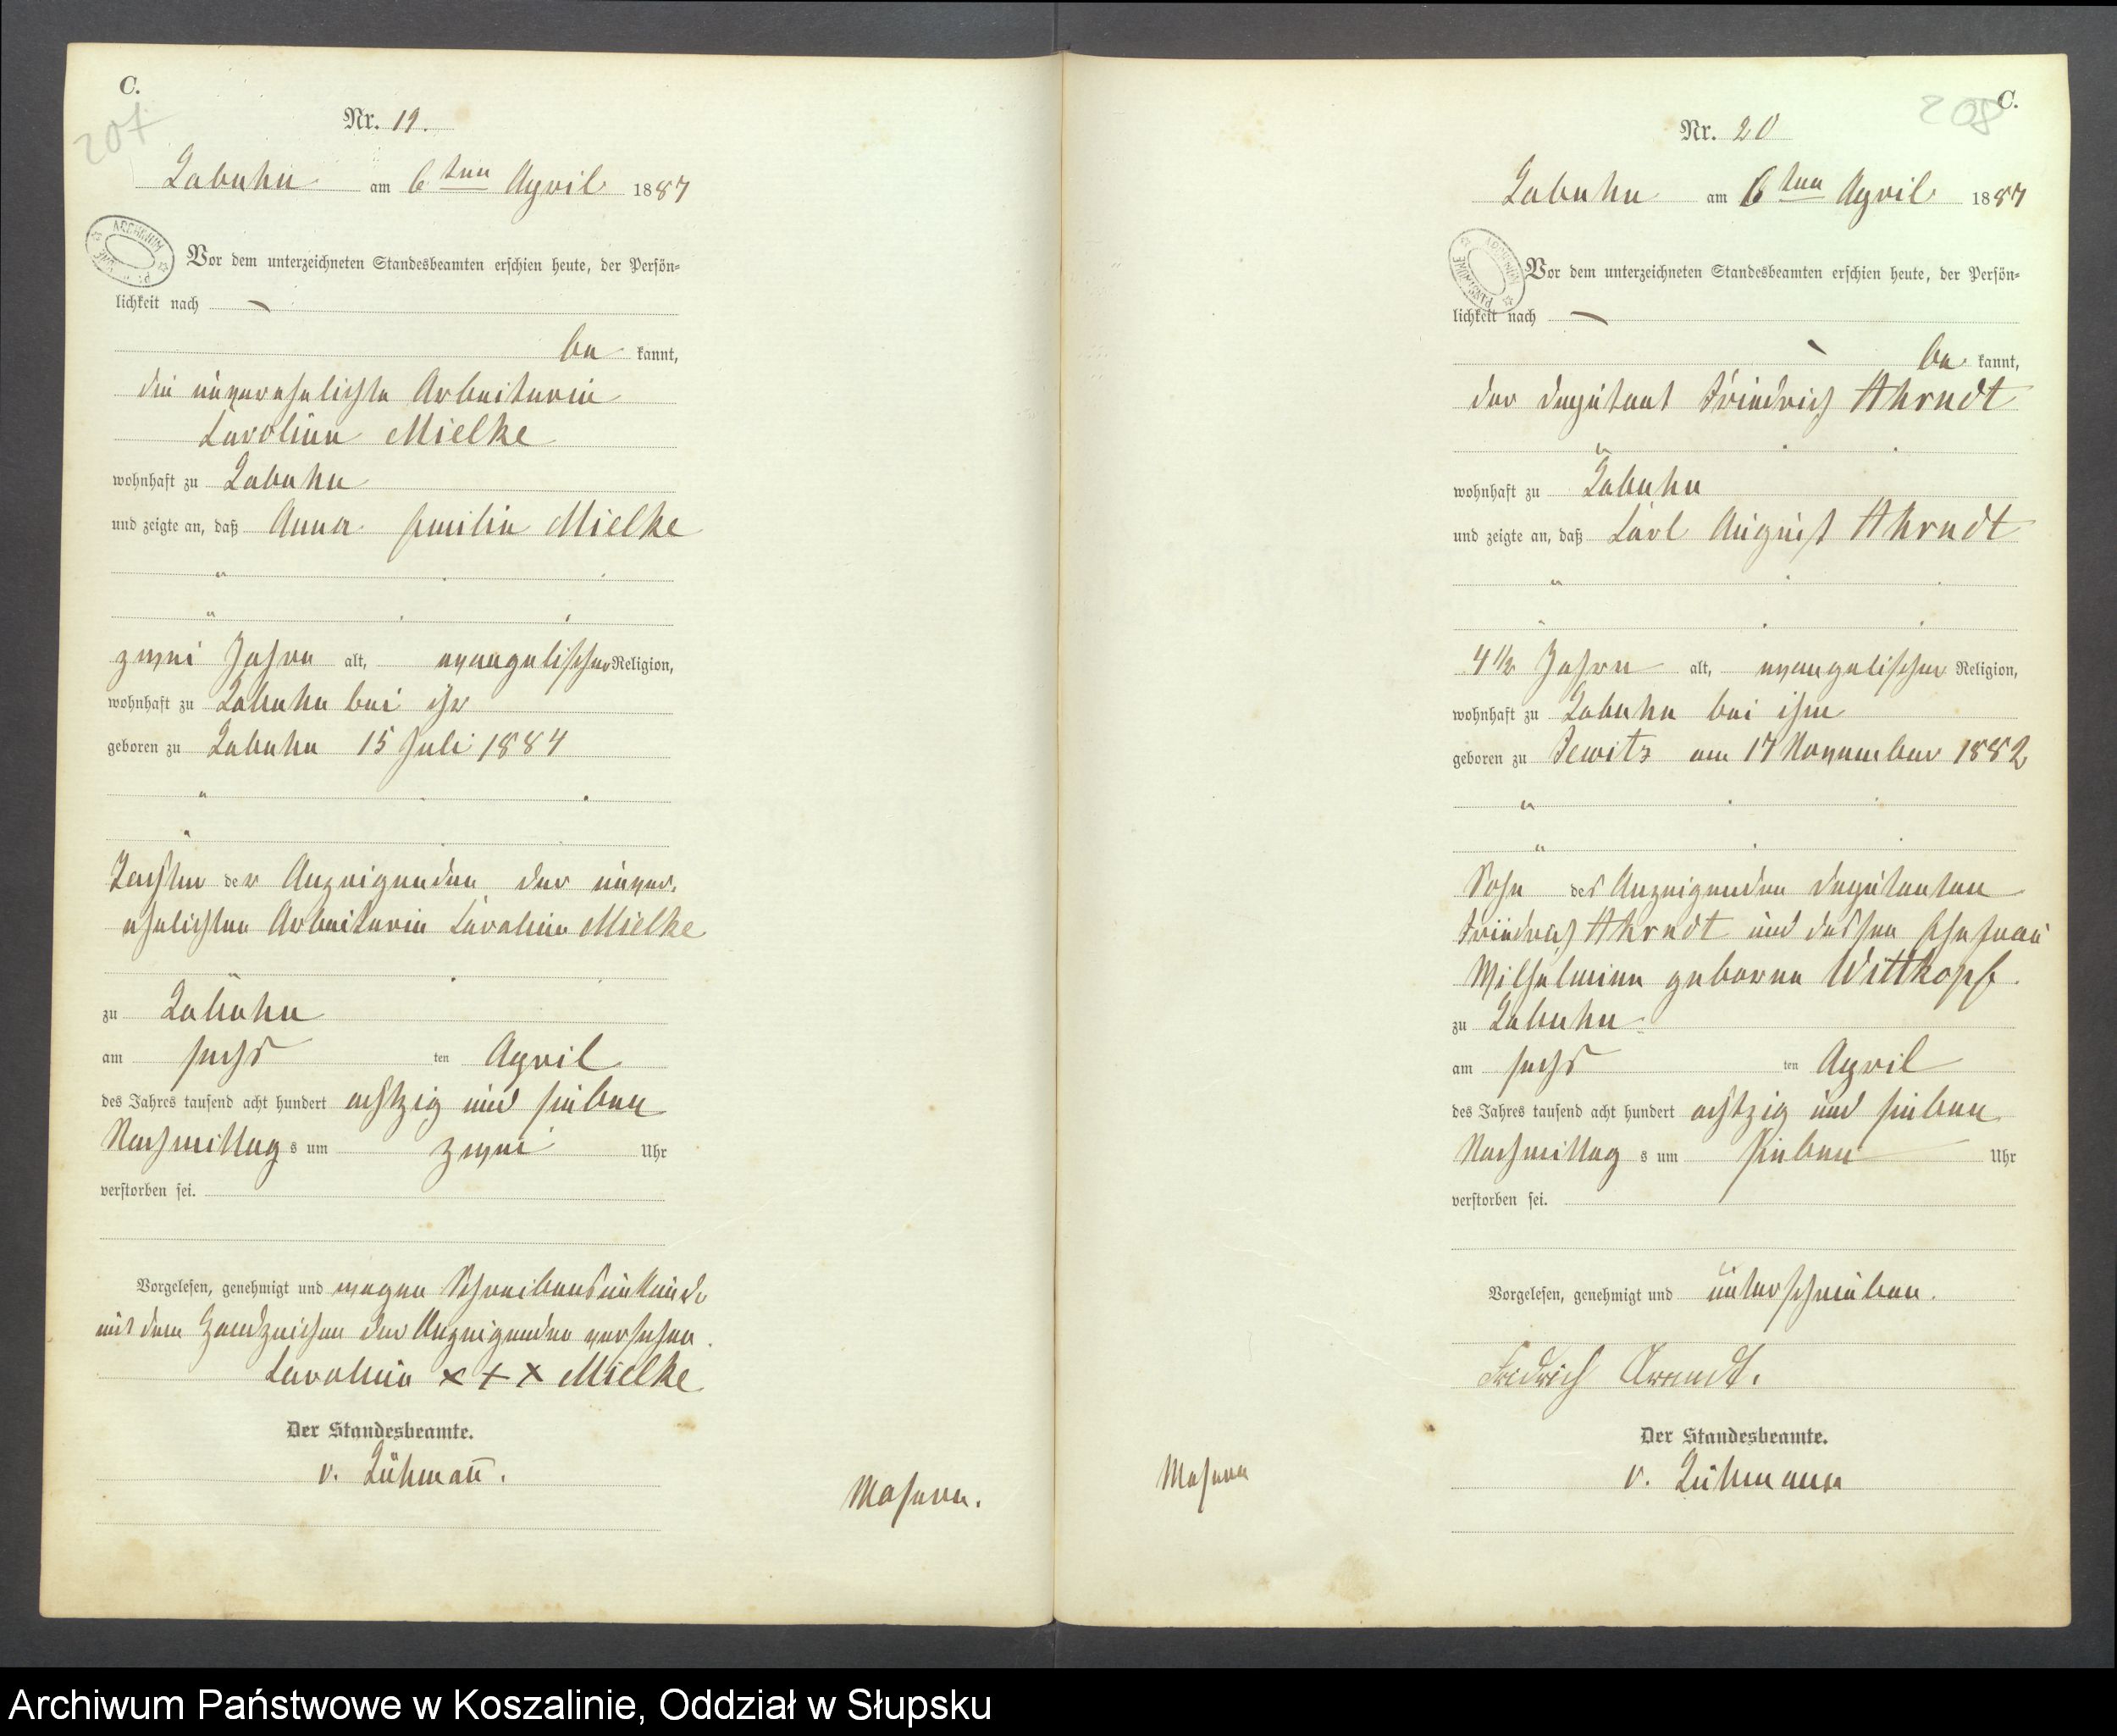 C.
207
Nr. 19.
Labuhn am 6ten April 1887
ARCHIWUM
Vor dem unterzeichneten Standesbeamten erschien heute, der Persön=
lichkeit nach
be kannt,
die unverehelichte Arbeiterin
Caroline Mielke
wohnhaft zu Labuhn
und zeigte an, daß Anna Emilie Mielke
zwei Jahre alt, evangelischer Religion,
wohnhaft zu Labuhn bei ihr
geboren zu Labuhn 15 Juli 1884
Tochter der Anzeigenden der unver,
ehelichten Arbeiterin Caroline Mielke
zu Labuhn
am sechs ten April
des Jahres tausend acht hundert achtzig und sieben
Nachmittag s um zwei Uhr
verstorben sei.
Vorgelesen, genehmigt und wegen Schreibensunkunde
mit dem Handzeichen der Anzeigenden versehen.
Caroline x + x Mielke
Der Standesbeamte.
v. Lühmañ.
Masern.
208
C.
Nr. 20
Labuhn am 6ten April 1887
ARCHIWUM PAŃSTWOWE
Vor dem unterzeichneten Standesbeamten erschien heute, der Persön=
lichkeit nach
be kannt,
der Deputant Friedrich Ahrndt
wohnhaft zu Labuhn
und zeigte an, daß Carl August Ahrndt
4 1/2 Jahre alt, evangelischer Religion,
wohnhaft zu Labuhn bei ihm
geboren zu Jewitz am 17 November 1882
Sohn des Anzeigenden Deputanten
Friedrich Ahrndt und dessen Ehefrau
Wilhelmine geborne Wittkopf.
zu Labuhn
am sechs ten April
des Jahres tausend acht hundert achtzig und sieben
Nachmittag s um sieben Uhr
verstorben sei.
Vorgelesen, genehmigt und unterschrieben.
Fridrich Arandt.
Der Standesbeamte.
v. Lühmann
Masern
Archiwum Państwowe w Koszalinie, Oddział w Słupsku